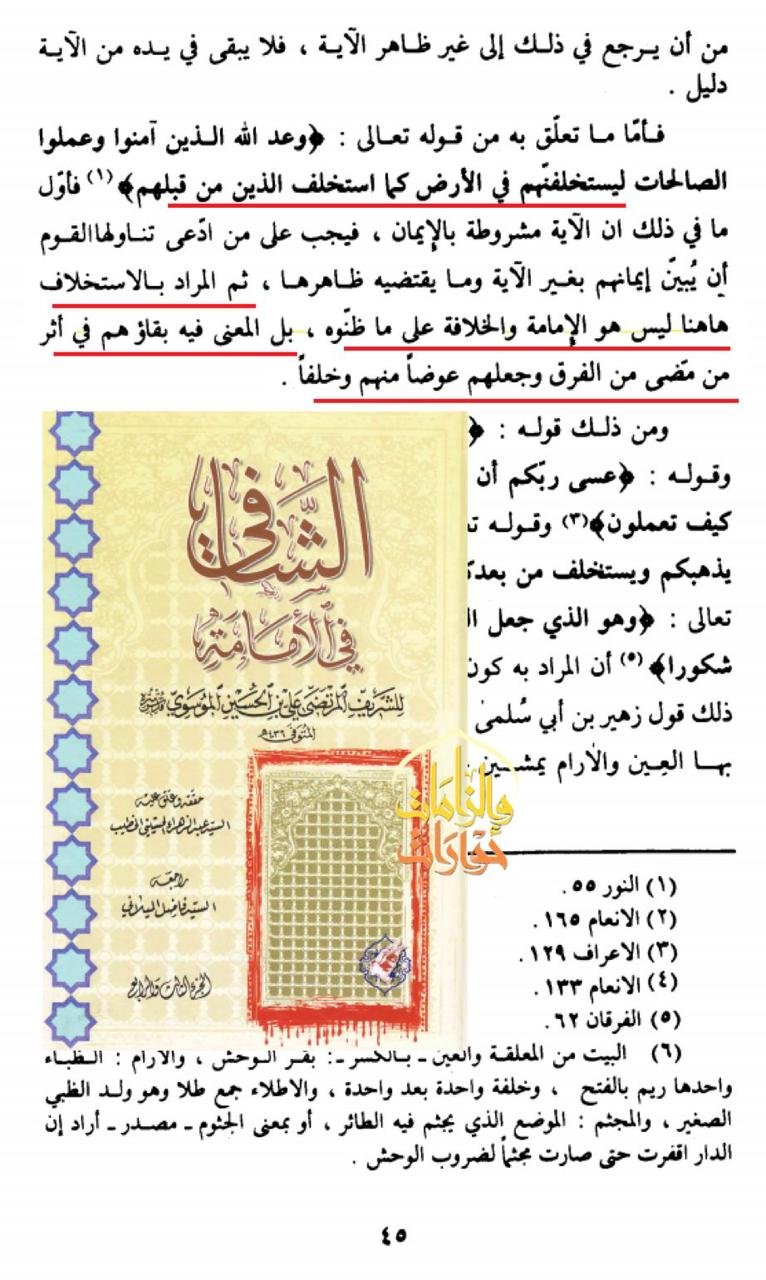 من أن يـرجع في ذلـك إلى غير ظـاهر الآيـة ، فلا يبقى في يـده من الآيـة
دليل .
فـأمّا مـا تعلّق به من قـوله تعـالى : ﴿وعد الله الـذين آمنوا وعملوا
الصالحات ليستخلفنّهم في الأرض كما استخلف الذين من قبلهم﴾ (١) فأوّل
ما في ذلك ان الآية مشروطة بالإيمان ، فيجب على من ادّعى تنـاولها القـوم
أن يُبيّن إيمانهم بغير الآية ومـا يقتضيه ظـاهرهـا ، ثم المراد بـالاستخلاف
هاهنا ليس هو الإمامة والخلافة على ما ظنّوه ، بل المعنى فيه بقاؤهم في أثر
من مّضى من الفرق وجعلهم عوضاً منهم وخلفاً .
ومن ذلـك قولـه : ﴿
وقـولـه : ﴿عسى ربّكم أن
كيف تعملون﴾(٣) وقـولـه
يذهبكم ويستخلف من
تعالى : ﴿وهو الذي جعل
شكورا﴾ (٥) أن المراد به كون
ذلك قول زهير بن أبي سُلمى
بهـا العِـين والأرام يمشـين
الشافي
في الأمامة
للشريف المرتضى علي بن الحسين الموسوي
المتوفى ٤٣٦هـ
حققه وعلق عليه
السيد عبد الزهراء الحسيني الخطيب
راجعه
السيد فاضل الميلاني
الجزء الثالث والرابع
والزامات
حوارات
(١) النور ٥٥.
(٢) الانعام ١٦٥.
(٣) الاعراف ١٢٩.
(٤) الانعام ١٣٣.
(٥) الفرقان ٦٢.
(٦) البيت من المعلقة والعين ـ بـالكسر ـ: بقر الـوحش ، والارام : الـظباء
واحدها ريم بالفتح ، وخلفة واحدة بعد واحدة ، والاطلاء جمع طلا وهو ولـد الظبي
الصغير ، والمجثم : الموضع الذي يجثم فيه الطائر ، أو بمعنى الجثوم ـ مصدر ـ أراد إن
الدار اقفرت حتى صارت مجثماً لضروب الوحش .
٤٥